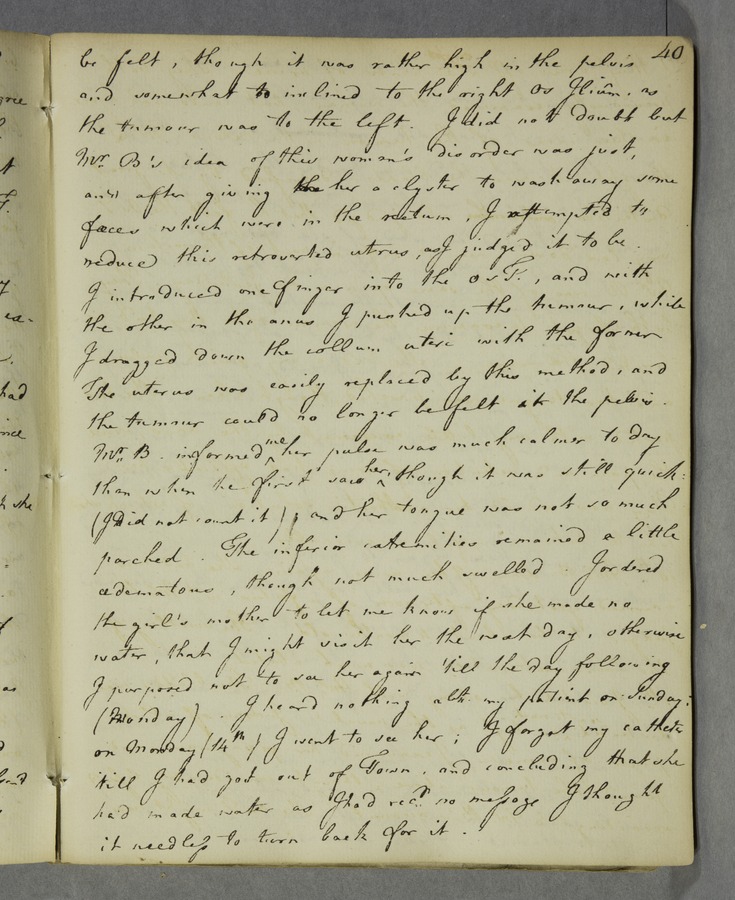 40
be felt, though it was rather high in the pelvis
and somewhat to inclined to the right Os Ilium. as
the tumour was to the left. I did not doubt but
Mr. B's idea of this woman's disorder was just,
and after giving the her a clyster to wash away some
fæces which were in the rectum, I attempted to
reduce this retroverted uterus, as I judged it to be.
I introduced one finger into the os T., and with
the other in the anus I pushed up the tumour, while
I dragged down the collum uteri with the former
The uterus was easily replaced by this method, and
the tumour could no longer be felt in the pelvis.
Mr. B. informed me her pulse was much calmer to day
than when he first saw her, though it was still quick:
(I did not count it); and her tongue was not so much
parched. The inferior extremities remained a little
œdematous, though not much swelled. I ordered
the girl's mother to let me know if she made no
water, that I might visit her the next day, otherwise
I purposed not to see her again 'till the day following
(Monday). I heard nothing abt. my patient on Sunday:
on Monday (14th) I went to see her; I forgot my catheter
till I had got out of Town, and concluding that she
had made water as I had recd. no message I thought
it needless to turn back for it.